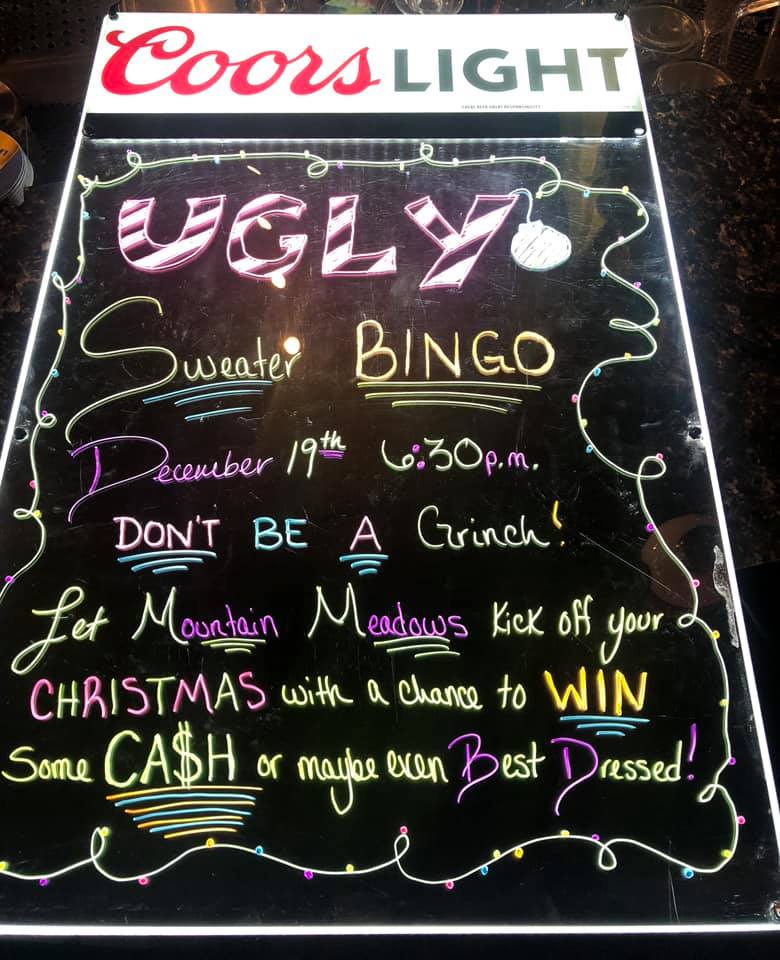 Coors LIGHT
GREAT BEER GREAT RESPONSIBILITY
UGLY
Sweater BINGO
December 19th 6:30p.m.
DON'T BE A Grinch!
Let Mountain Meadows Kick off your
CHRISTMAS with a chance to WIN
Some CA$H or maybe even Best Dressed!